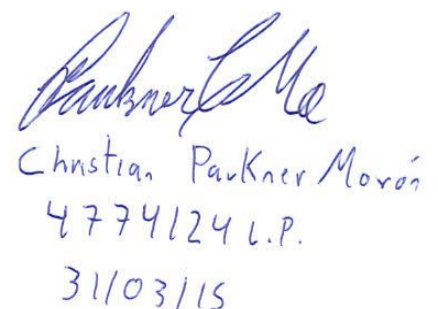 Christian Paukner Morón
4774124 L.P.
31/03/15